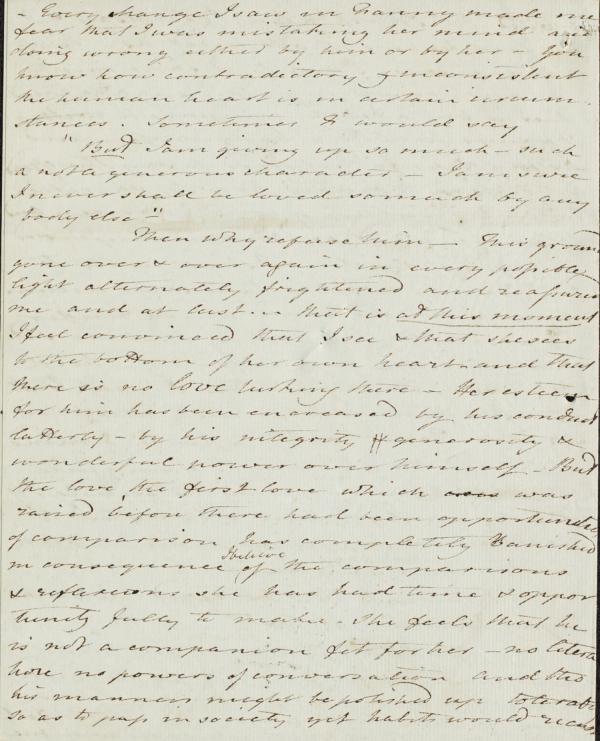 - Every change I saw in Fanny made me
fear that I was mistaking her mind and
doing wrong either by him or by her - You
know how contradictory & inconsistent
the human heart is in certain circum
stances. Sometimes F would say
"But I am giving up so much - such
a noble generous character - I am sure
I never shall be loved so much by any
body else" -
Then why refuse him - This ground
gone over & over again in every possible
light alternately frightened and reassured
me and at last ... that is at this moment
I feel convinced that I see & that she sees
to the bottom of her own heart and that
there is no love lurking there - Her esteem
for him has been encreased by his conduct
latterly - by his integrity & generosity &
wonderful power over himself - But
the love the first love which was
raised before there had been opportunities
of comparison has completely vanished
in consequence I believe of the comparisons
& reflexions she has had time & oppor
tunity fully to make. She feels that he
is not a companion fit for her - no litera
ture no powers of conversation and tho
his manners might be polished up tolerably
so as to pass in society yet habits would